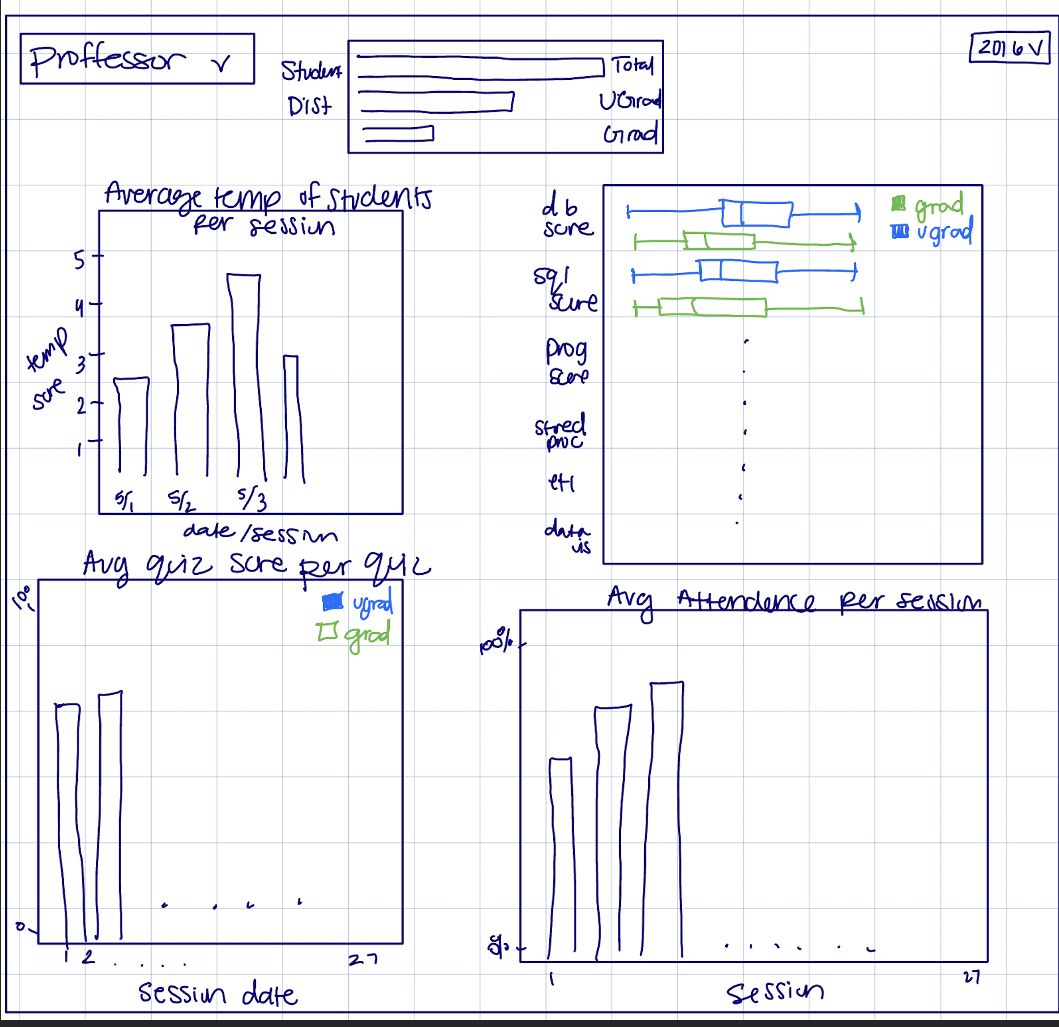 Proffessor v
2016 v
Student
Dist
Total
UGrad
Grad
Average temp of students
per session
5
4
3
2
1
temp
score
5/1
5/2
5/3
date/session
db
score
sql
score
prog
score
stored
proc
etl
data
vis
grad
ugrad
Avg quiz score per quiz
100
0
ugrad
grad
1
2
27
session date
Avg Attendence per session
100%
0%
1
27
session